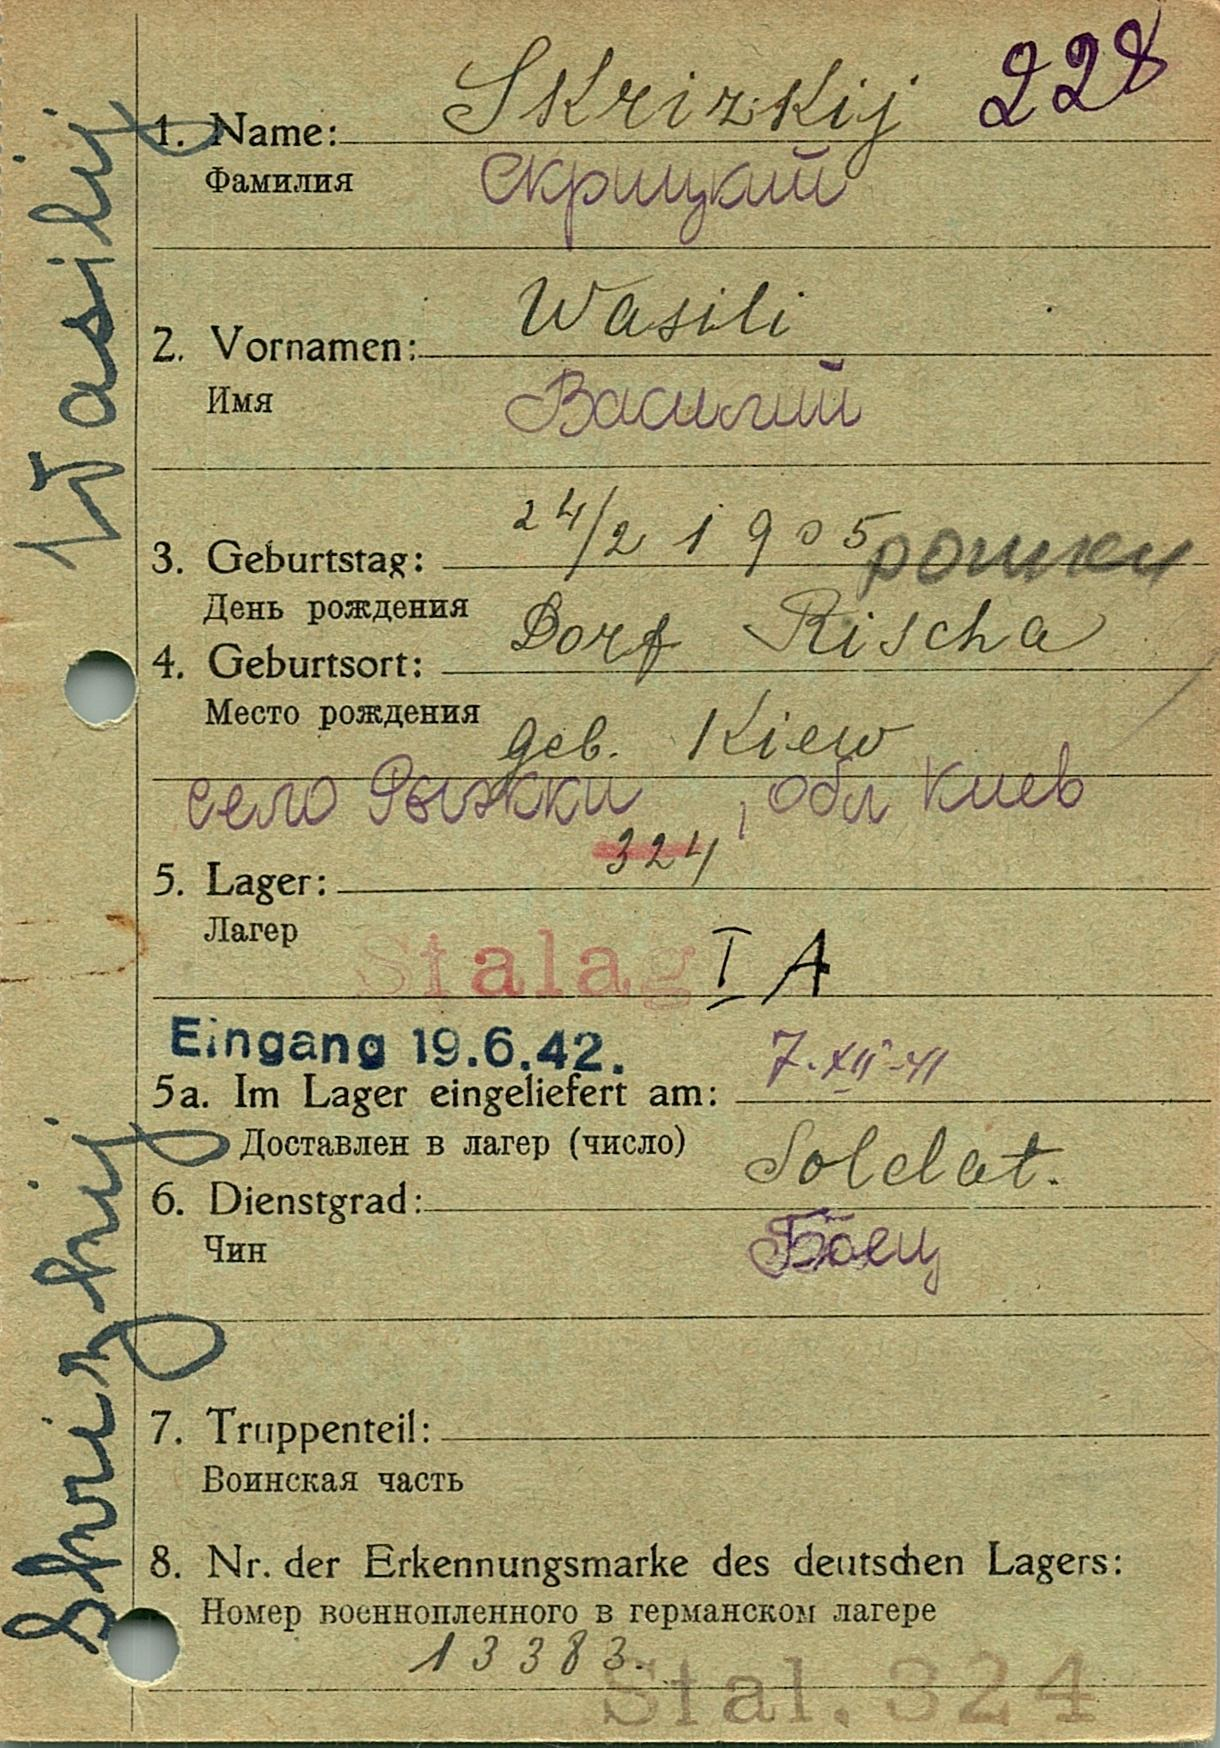 228
1. Name: Skrizkij
Фамилия Скрицкий
2. Vornamen: Wasili
Имя Василий
3. Geburtstag: 24/2 1905
День рождения
4. Geburtsort: Dorf Rischa
Место рождения geb. Kiew
село Рыжки, обл Киев
5. Lager: 324
Лагер
Stalag I A
Eingang 19.6.42.
5a. Im Lager eingeliefert am: 7.XII-41
Доставлен в лагер (число)
6. Dienstgrad: Soldat.
Чин Боец
7. Truppenteil:
Воинская часть
8. Nr. der Erkennungsmarke des deutschen Lagers:
Номер военнопленного в германском лагере
13383.
Stal. 324
Skrizkij Wasilij